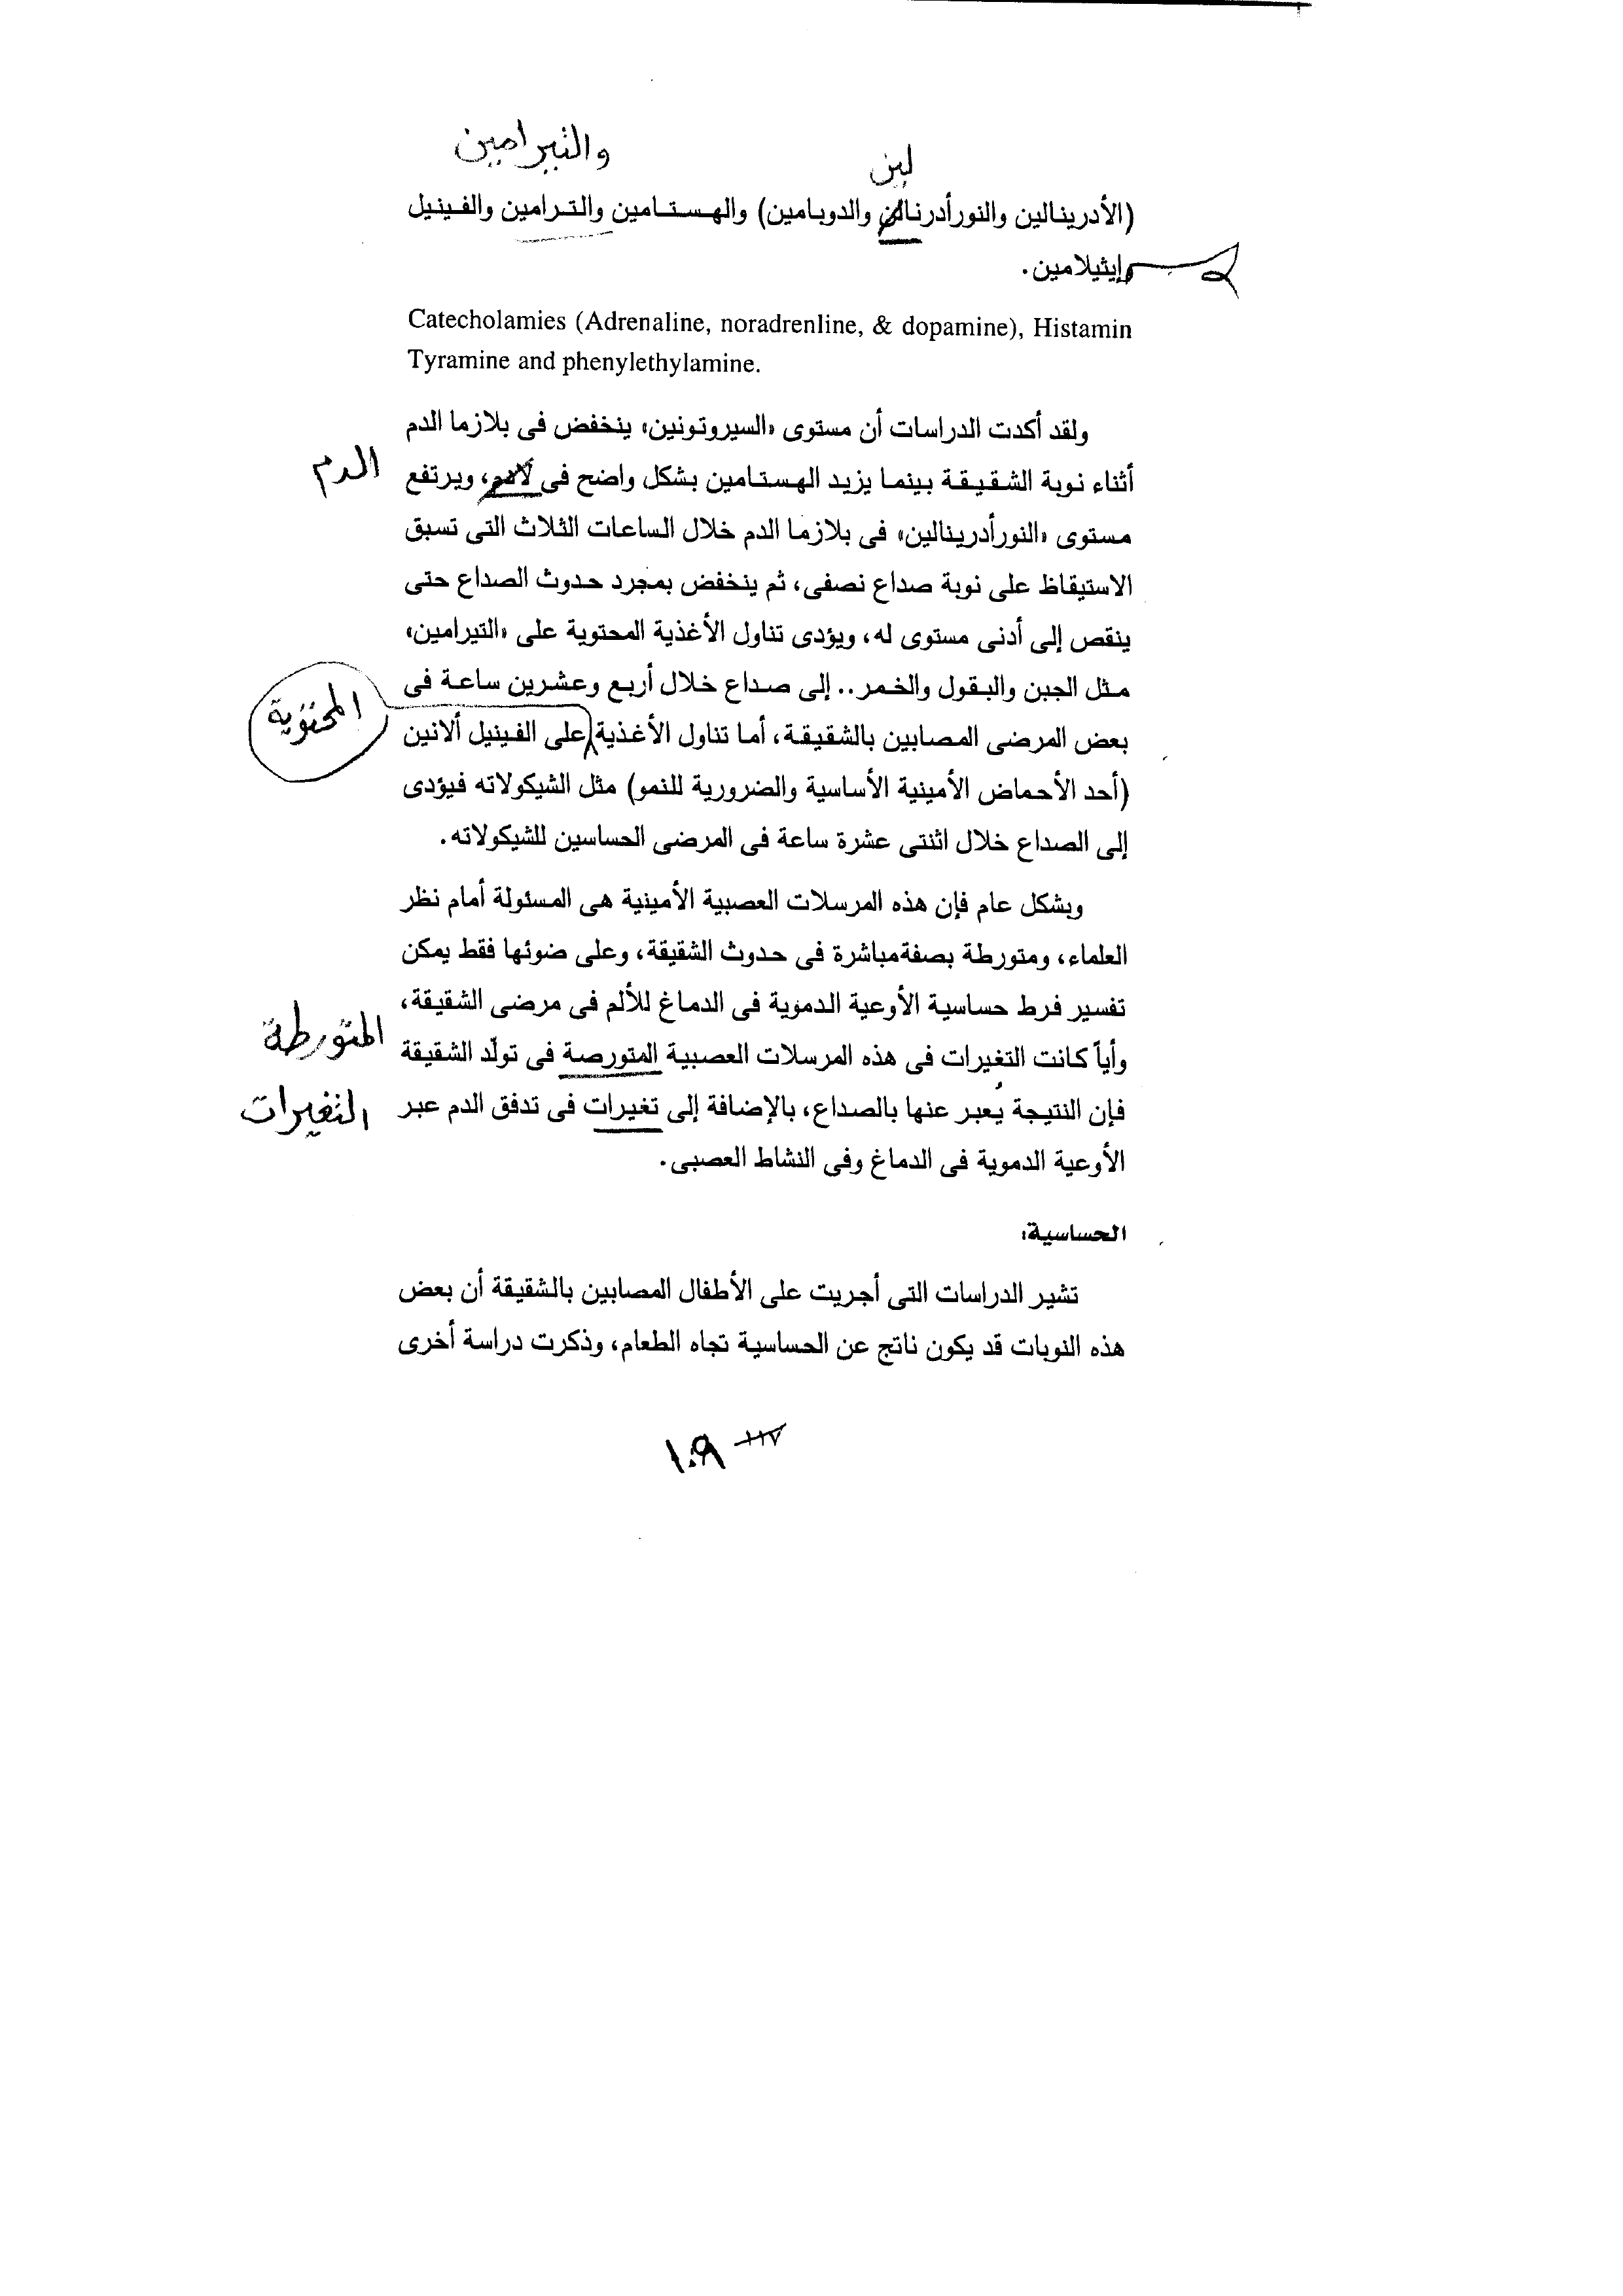 والتيرامين
لين
(الأدرينالين والنورأدرنالن والدوبامين) والهستامين والترامين والفينيل
إيثيلامين.
Catecholamies (Adrenaline, noradrenline, & dopamine), Histamin
Tyramine and phenylethylamine.
ولقد أكدت الدراسات أن مستوى «السيروتونين» ينخفض فى بلازما الدم
الدم
أثناء نوبة الشقيقة بينما يزيد الهستامين بشكل واضح فى ، ويرتفع
مستوى «النورأدرينالين» فى بلازما الدم خلال الساعات الثلاث التى تسبق
الاستيقاظ على نوبة صداع نصفى، ثم ينخفض بمجرد حدوث الصداع حتى
ينقص إلى أدنى مستوى له، ويؤدى تناول الأغذية المحتوية على «التيرامين»
مثل الجبن والبقول والخمر.. إلى صداع خلال أربع وعشرين ساعة فى
المحتوية
بعض المرضى المصابين بالشقيقة، أما تناول الأغذية على الفينيل ألانين
(أحد الأحماض الأمينية الأساسية والضرورية للنمو) مثل الشيكولاته فيؤدى
إلى الصداع خلال اثنتى عشرة ساعة فى المرضى الحساسين للشيكولاته.
وبشكل عام فإن هذه المرسلات العصبية الأمينية هى المسئولة أمام نظر
العلماء، ومتورطة بصفة مباشرة فى حدوث الشقيقة، وعلى ضوئها فقط يمكن
تفسير فرط حساسية الأوعية الدموية فى الدماغ للألم فى مرضى الشقيقة،
المتورطة
وأياً كانت التغيرات فى هذه المرسلات العصبية المتورصة فى تولّد الشقيقة
التغيرات
فإن النتيجة يُعبر عنها بالصداع، بالإضافة إلى تغيرات فى تدفق الدم عبر
الأوعية الدموية فى الدماغ وفى النشاط العصبى.
الحساسية:
تشير الدراسات التى أجريت على الأطفال المصابين بالشقيقة أن بعض
هذه النوبات قد يكون ناتج عن الحساسية تجاه الطعام، وذكرت دراسة أخرى
١١٧
١٠٩